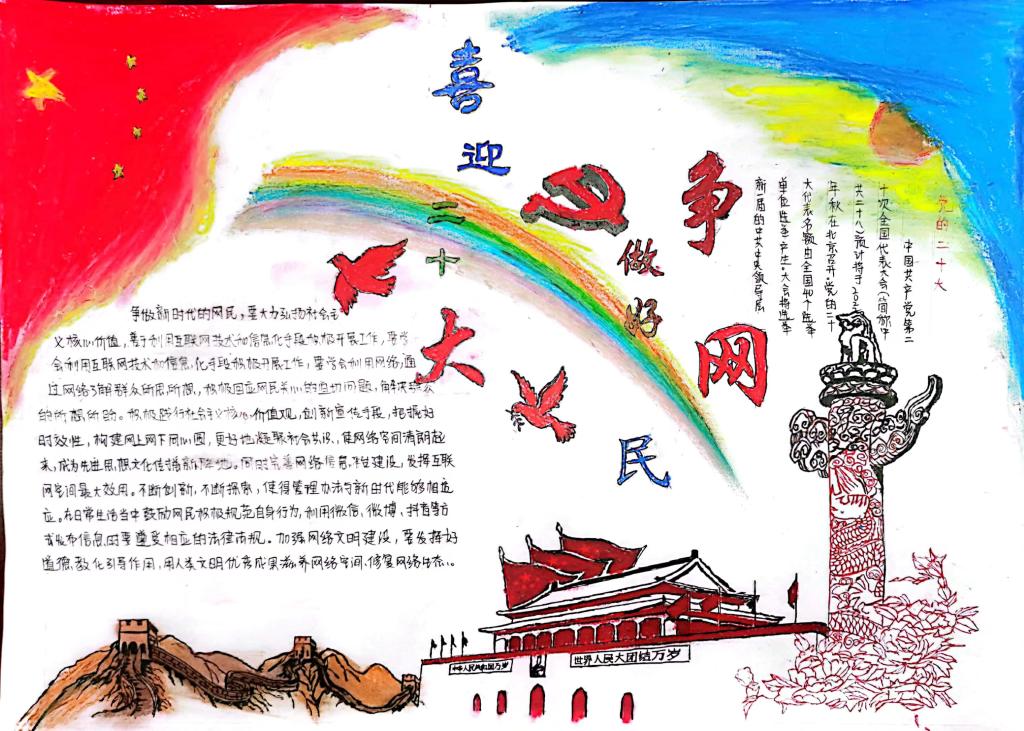 喜迎二十大
争做好网民
党的二十大
中国共产党第二
十次全国代表大会(简称中
共二十大)预计将于202
年秋在北京召开。党的二十
大代表名额由全国40个选举
单位选举产生。大会将选举
新一届的中共中央领导层
争做新时代的网民,要大力弘扬社会主
义核心价值,善于利用互联网技术和信息化手段积极开展工作,要学
会利用互联网技术和信息化手段积极开展工作,要学会利用网络,通
过网络了解群众所思所想,积极回应网民关心的迫切问题,解决群众
的所想所盼。积极践行社会主义核心价值观,创新宣传手段,把握好
时效性,构建网上网下同心圆,更好地凝聚社会共识,使网络空间清朗起
来,成为先进思想文化传播新阵地。同时完善网络信息 建设,发挥互联
网空间最大效用。不断创新,不断探索,使得管理办法与新时代能够相适
应。在日常生活当中鼓励网民积极规范自身行为,利用微信、微博、抖音等方
式发布信息时要遵受相应的法律法规。加强网络文明建设,要发挥好
道德教化引导作用,用人类文明优秀成果滋养网络空间、修复网络生态。
中华人民共和国万岁
世界人民大团结万岁